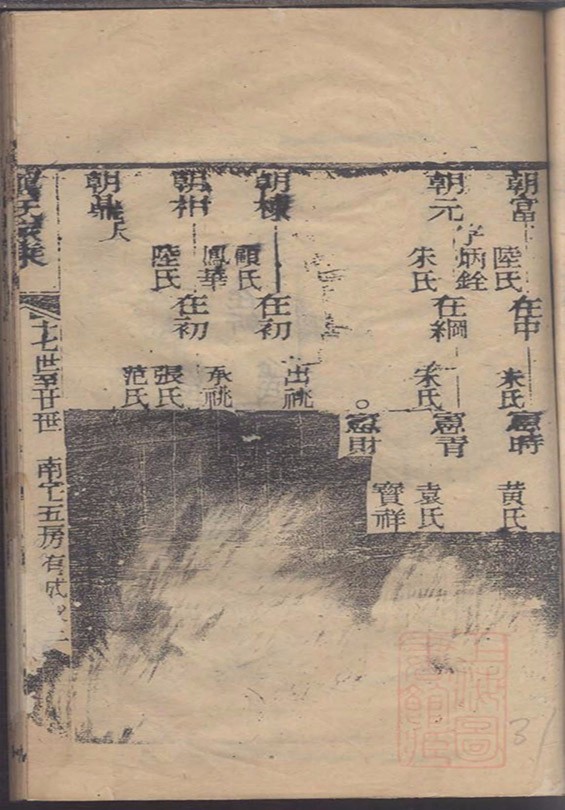 朝富
陸氏
在中
朱氏
憲時
黄氏
朝元
字炳銓
朱氏
在綱
朱氏
憲青
袁氏
寶祥
憲財
朝棟
顧氏
在初
出祧
朝相
鳳華
陸氏
在初
承祧
張氏
范氏
朝鼎
夭
十七世至廿世
南七五房有成
3